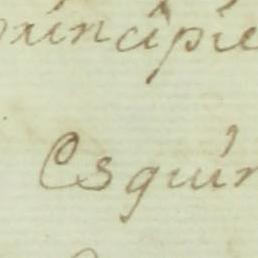 principie
Esquin